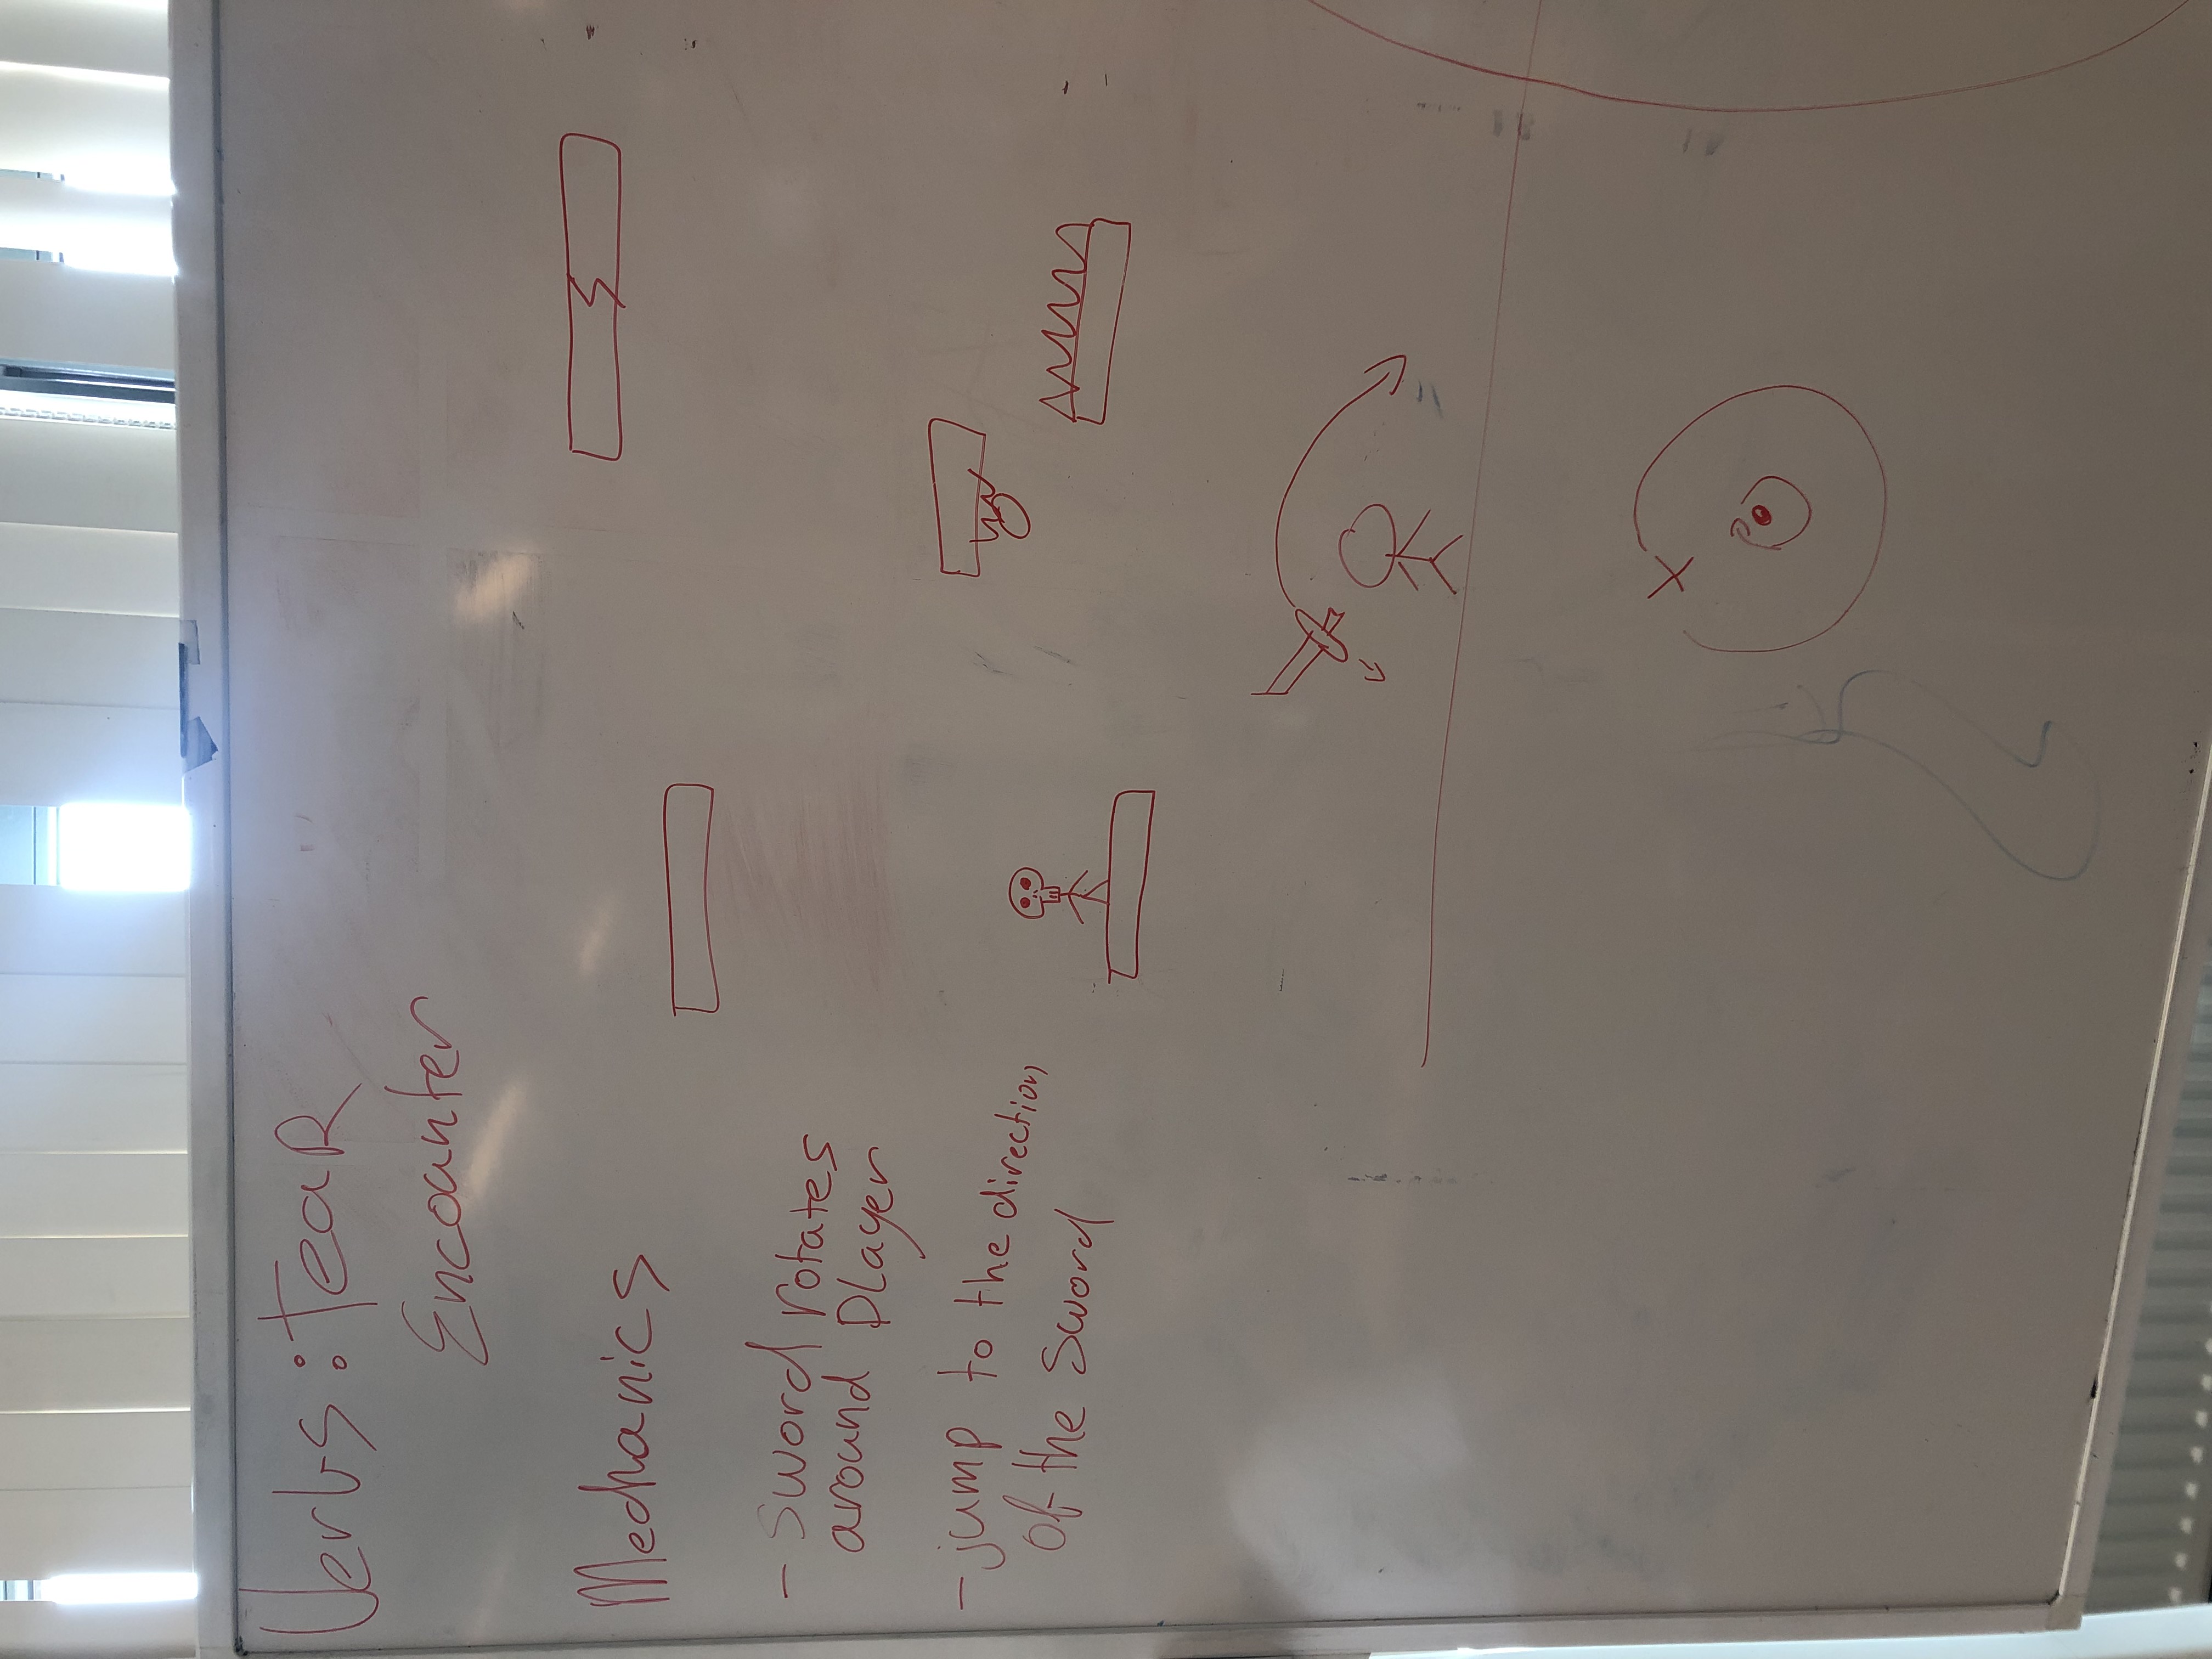 Verbs: Tear
Encounter
Mechanics
- Sword rotates
around Player
- jump to the direction
of the Sword